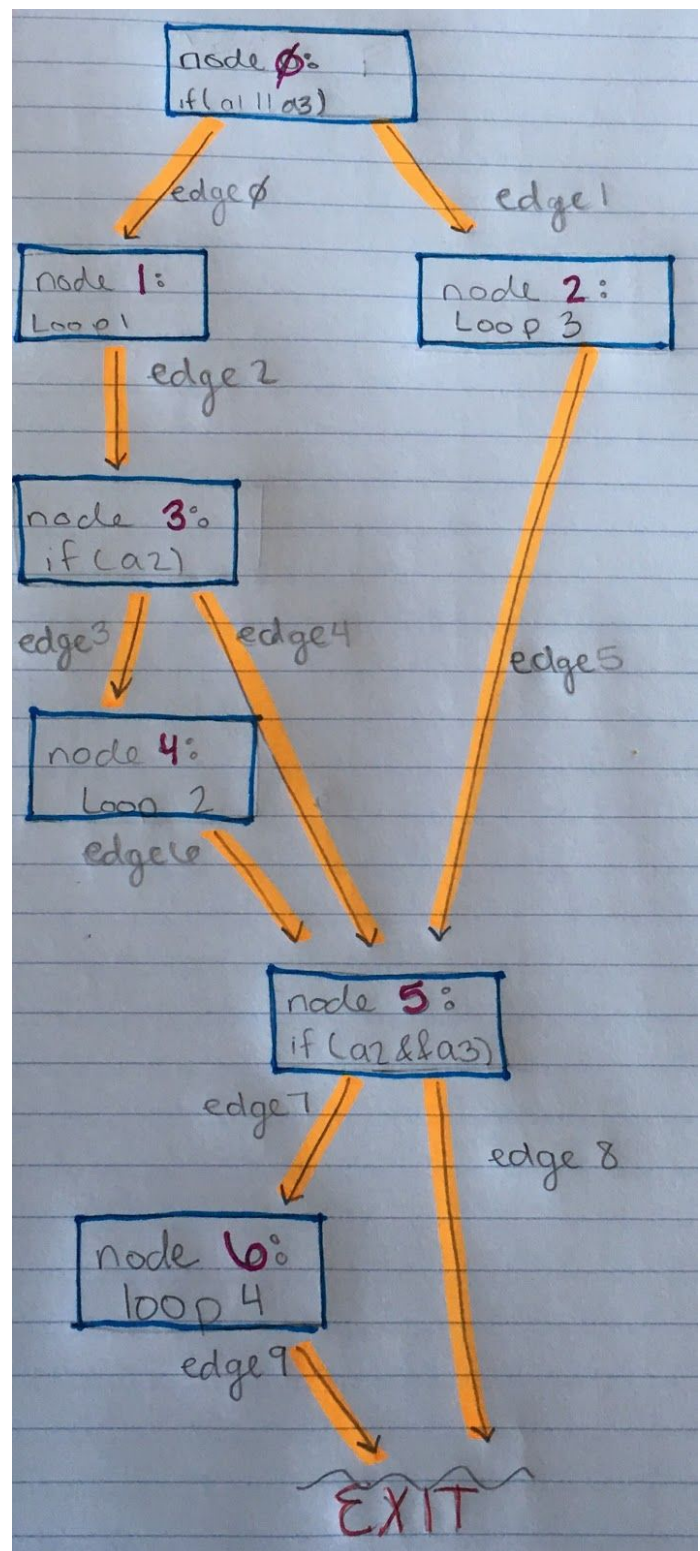 node 0:
if(a1 || a3)
edge 0
edge 1
node 1:
Loop 1
node 2:
Loop 3
edge 2
node 3:
if (a2)
edge 3
edge 4
edge 5
node 4:
Loop 2
edge 6
node 5:
if (a2 && a3)
edge 7
edge 8
node 6:
loop 4
edge 9
EXIT